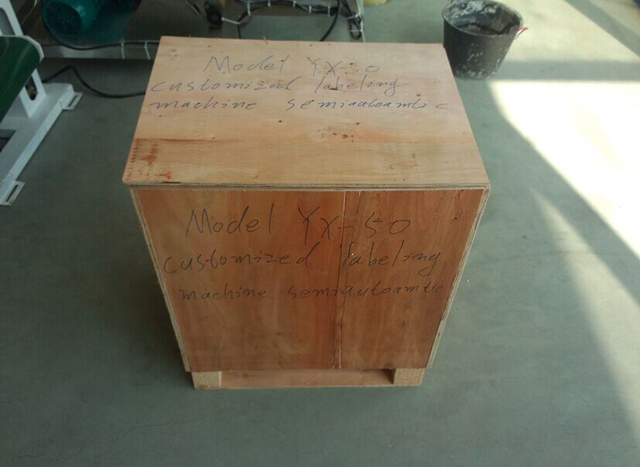 Model YX-50
customized labeling
machine semiautoamtic
Model YX-50
customized labeling
machine semiautoamtic